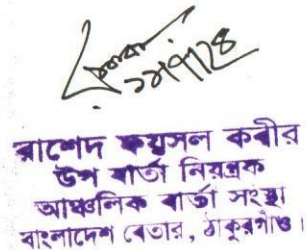 রাশেদ ফয়সল কবীর
উপ বার্তা নিয়ন্ত্রক
আঞ্চলিক বার্তা সংস্থা
বাংলাদেশ বেতার, ঠাকুরগাঁও।